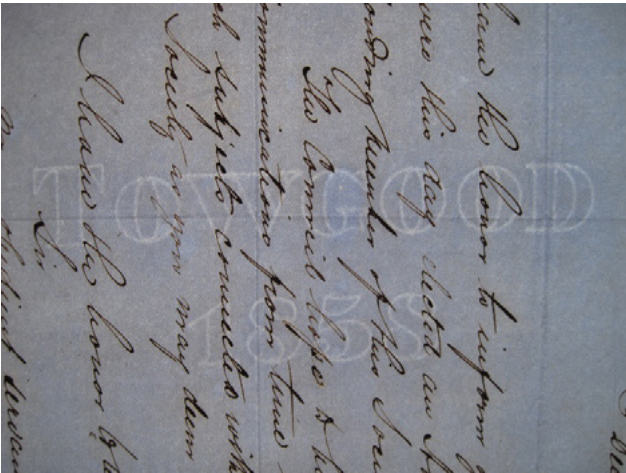 TOWGOOD
1858
have the honor to inform
were this day elected an
onding Member of this Soci
The Council hope to
mmunications from time
ch subjects connected with
Society as you may deem
I have the honor to be
Sir
servan